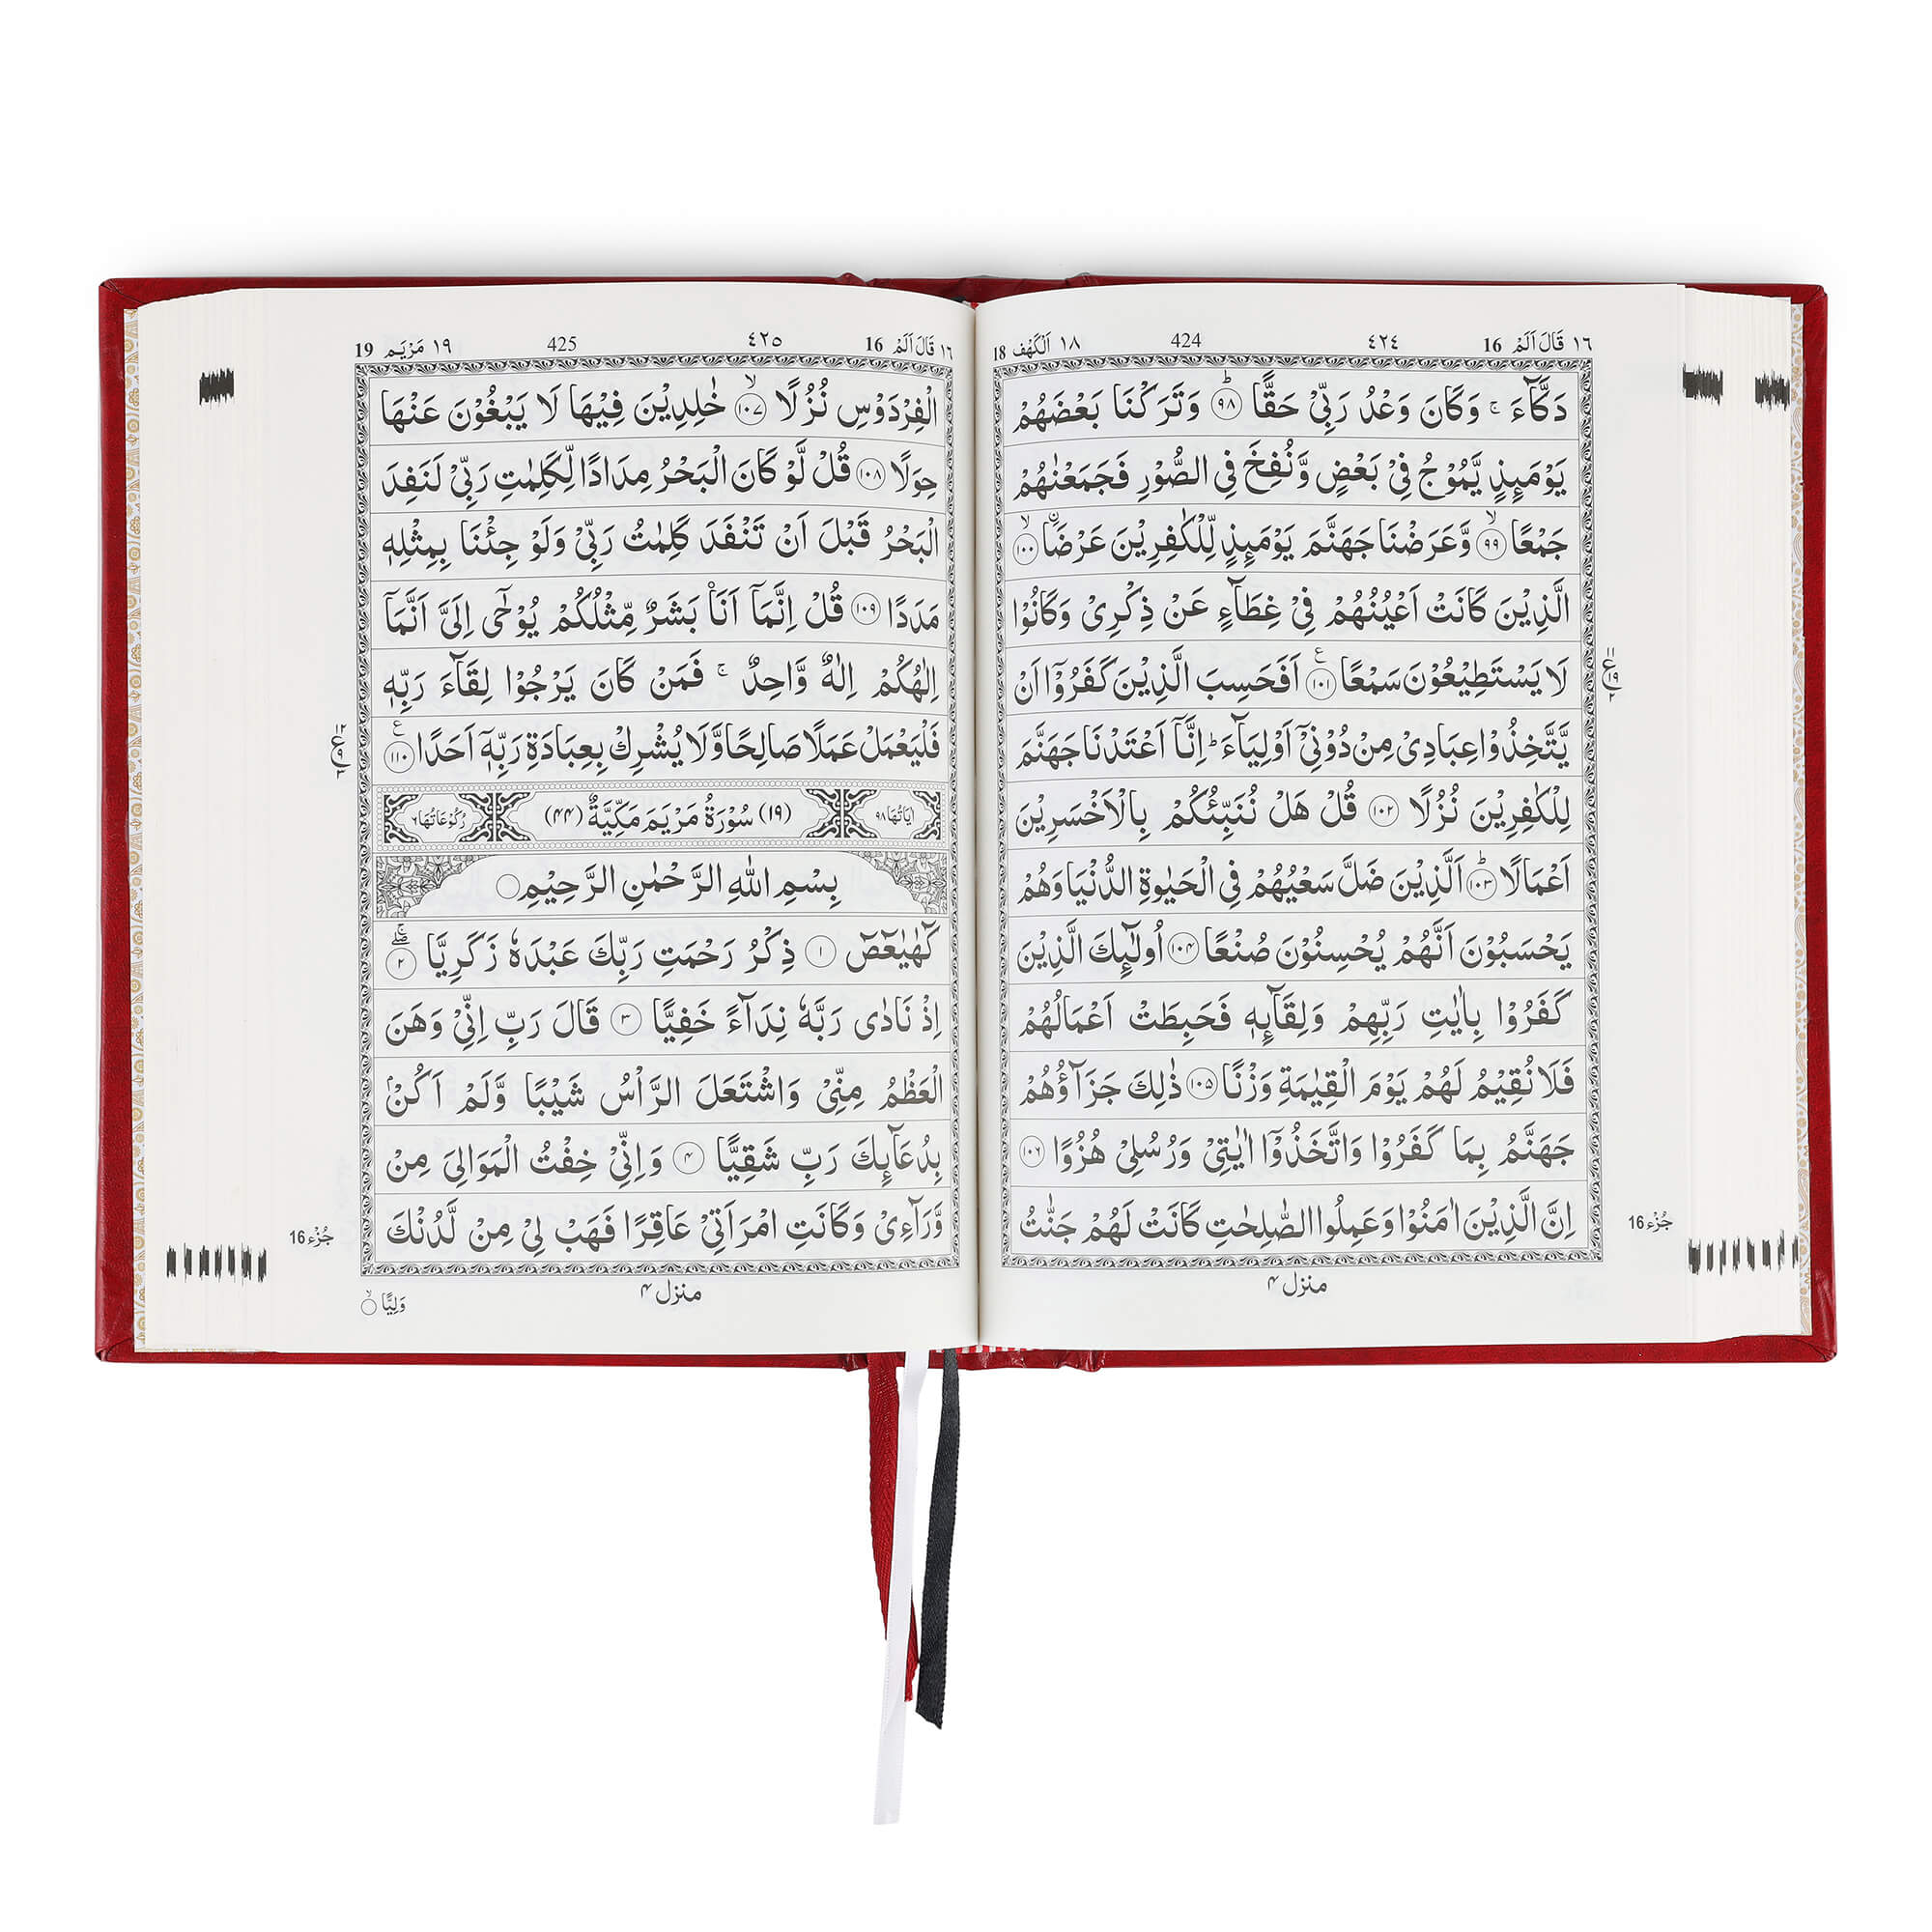 ١٦ قَالَ اَلَمْ 16 ٤٢٤ 424 ١٨ اَلْكَهْف 18
دَكَّآءَ ۚ وَكَانَ وَعْدُ رَبِّىْ حَقًّا ؕ‏ ﴿۹۸﴾ وَتَرَكْنَا بَعْضَهُمْ
يَوْمَئِذٍ يَّمُوْجُ فِىْ بَعْضٍ وَّنُفِخَ فِى الصُّوْرِ فَجَمَعْنٰهُمْ
جَمْعًا ۙ‏ ﴿۹۹﴾ وَّعَرَضْنَا جَهَنَّمَ يَوْمَئِذٍ لِّلْكٰفِرِيْنَ عَرْضَاۨ ۙ‏ ﴿۱۰۰﴾
الَّذِيْنَ كَانَتْ اَعْيُنُهُمْ فِىْ غِطَآءٍ عَنْ ذِكْرِىْ وَكَانُوْا
لَا يَسْتَطِيْعُوْنَ سَمْعًا ﴿۱۰۱﴾ ع اَفَحَسِبَ الَّذِيْنَ كَفَرُوْۤا اَنْ
يَّتَّخِذُوْا عِبَادِىْ مِنْ دُوْنِىْۤ اَوْلِيَآءَ ؕ اِنَّاۤ اَعْتَدْنَا جَهَنَّمَ
لِلْكٰفِرِيْنَ نُزُلًا ﴿۱۰۲﴾ قُلْ هَلْ نُنَبِّئُكُمْ بِالْاَخْسَرِيْنَ
اَعْمَالًا ؕ‏ ﴿۱۰۳﴾ اَلَّذِيْنَ ضَلَّ سَعْيُهُمْ فِى الْحَيٰوةِ الدُّنْيَا وَهُمْ
يَحْسَبُوْنَ اَنَّهُمْ يُحْسِنُوْنَ صُنْعًا ﴿۱۰۴﴾ اُولٰٓئِكَ الَّذِيْنَ
كَفَرُوْا بِاٰيٰتِ رَبِّهِمْ وَلِقَآئِهٖ فَحَبِطَتْ اَعْمَالُهُمْ
فَلَا نُقِيْمُ لَهُمْ يَوْمَ الْقِيٰمَةِ وَزْنًا ﴿۱۰۵﴾ ذٰلِكَ جَزَآؤُهُمْ
جَهَنَّمُ بِمَا كَفَرُوْا وَاتَّخَذُوْۤا اٰيٰتِىْ وَرُسُلِىْ هُزُوًا ﴿۱۰۶﴾
اِنَّ الَّذِيْنَ اٰمَنُوْا وَعَمِلُوا الصّٰلِحٰتِ كَانَتْ لَهُمْ جَنّٰتُ
منزل ۴
جُزْء 16
١٦ قَالَ اَلَمْ 16 ٤٢٥ 425 ١٩ مَرْيَم 19
الْفِرْدَوْسِ نُزُلًا ۙ‏ ﴿۱۰۷﴾ خٰلِدِيْنَ فِيْهَا لَا يَبْغُوْنَ عَنْهَا
حِوَلًا ﴿۱۰۸﴾ قُلْ لَّوْ كَانَ الْبَحْرُ مِدَادًا لِّكَلِمٰتِ رَبِّىْ لَنَفِدَ
الْبَحْرُ قَبْلَ اَنْ تَنْفَدَ كَلِمٰتُ رَبِّىْ وَلَوْ جِئْنَا بِمِثْلِهٖ
مَدَدًا ﴿۱۰۹﴾ قُلْ اِنَّمَاۤ اَنَا۟ بَشَرٌ مِّثْلُكُمْ يُوْحٰٓى اِلَىَّ اَنَّمَاۤ
اِلٰهُكُمْ اِلٰهٌ وَّاحِدٌ ۚ فَمَنْ كَانَ يَرْجُوْا لِقَآءَ رَبِّهٖ
فَلْيَعْمَلْ عَمَلًا صَالِحًا وَّلَا يُشْرِكْ بِعِبَادَةِ رَبِّهٖۤ اَحَدًا ﴿۱۱۰﴾ ع
اٰيَاتُهَا ۹۸ (۱۹) سُوْرَةُ مَرْيَمَ مَكِّيَّةٌ (۴۴) رُكُوْعَاتُهَا ۶
بِسْمِ اللهِ الرَّحْمٰنِ الرَّحِيْمِ
كٓهٰيٰعٓصٓ ﴿۱﴾ ذِكْرُ رَحْمَتِ رَبِّكَ عَبْدَهٗ زَكَرِيَّا ۖۚ ﴿۲﴾
اِذْ نَادٰى رَبَّهٗ نِدَآءً خَفِيًّا ﴿۳﴾ قَالَ رَبِّ اِنِّىْ وَهَنَ
الْعَظْمُ مِنِّىْ وَاشْتَعَلَ الرَّاْسُ شَيْبًا وَّلَمْ اَكُنْۢ
بِدُعَآئِكَ رَبِّ شَقِيًّا ﴿۴﴾ وَاِنِّىْ خِفْتُ الْمَوَالِىَ مِنْ
وَّرَآءِىْ وَكَانَتِ امْرَاَتِىْ عَاقِرًا فَهَبْ لِىْ مِنْ لَّدُنْكَ
منزل ۴
وَلِيًّا ۙ
جُزْء 16